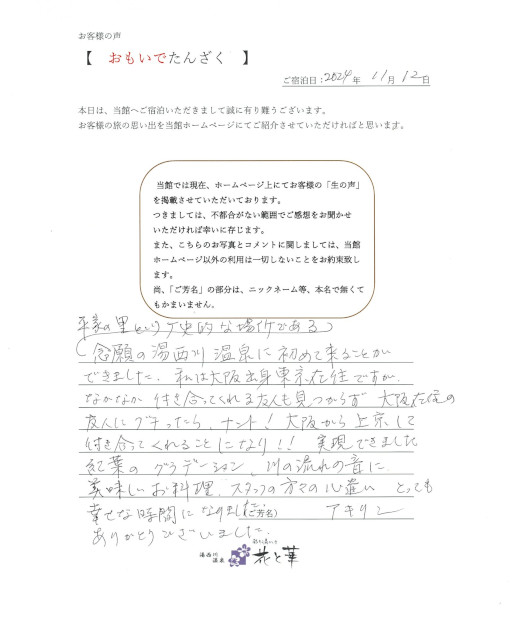 お客様の声
【 おもいでたんざく 】
ご宿泊日：2024年 11月 12日
本日は、当館へご宿泊いただきまして誠に有り難うございます。
お客様の旅の思い出を当館ホームページにてご紹介させていただければと思います。
当館では現在、ホームページ上にてお客様の「生の声」
を掲載させていただいております。
つきましては、不都合がない範囲でご感想をお聞かせ
いただければ幸いに存じます。
また、こちらのお写真とコメントに関しましては、当館
ホームページ以外の利用は一切しないことをお約束致し
ます。
尚、「ご芳名」の部分は、ニックネーム等、本名で無くて
もかまいません。
平家の里という歴史的な場所である
念願の湯西川温泉に初めて来ることが
できました。私は大阪出身東京在住ですが、
なかなか付き合ってくれる友人も見つからず 大阪在住の
友人にグチったら、ナント！大阪から上京して
付き合ってくれることになり！！ 実現できました
紅葉のグラデーション、川の流れの音に、
美味しいお料理、スタッフの方々の心遣い とっても
幸せな時間になりました。(ご芳名) アキリン
ありがとうございました。
湯西川温泉 彩り湯かしき 花と華